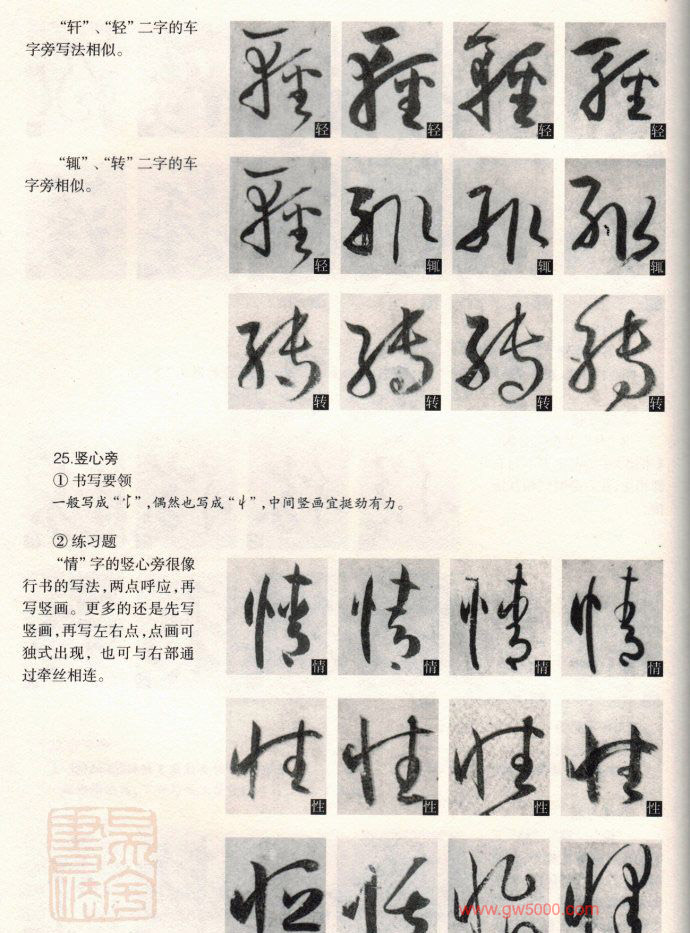 “轩”、“轻”二字的车
字旁写法相似。
轻 轻 轻 轻
“辄”、“转”二字的车
字旁相似。
轻 辄 辄 辄
转 转 转 转
25.竖心旁
① 书写要领
一般写成“忄”,偶然也写成“”,中间竖画宜挺劲有力。
② 练习题
“情”字的竖心旁很像
行书的写法,两点呼应,再
写竖画。更多的还是先写
竖画,再写左右点,点画可
独式出现，也可与右部通
过牵丝相连。
情 情 情 情
性 性 性 性
www.gw5000.com